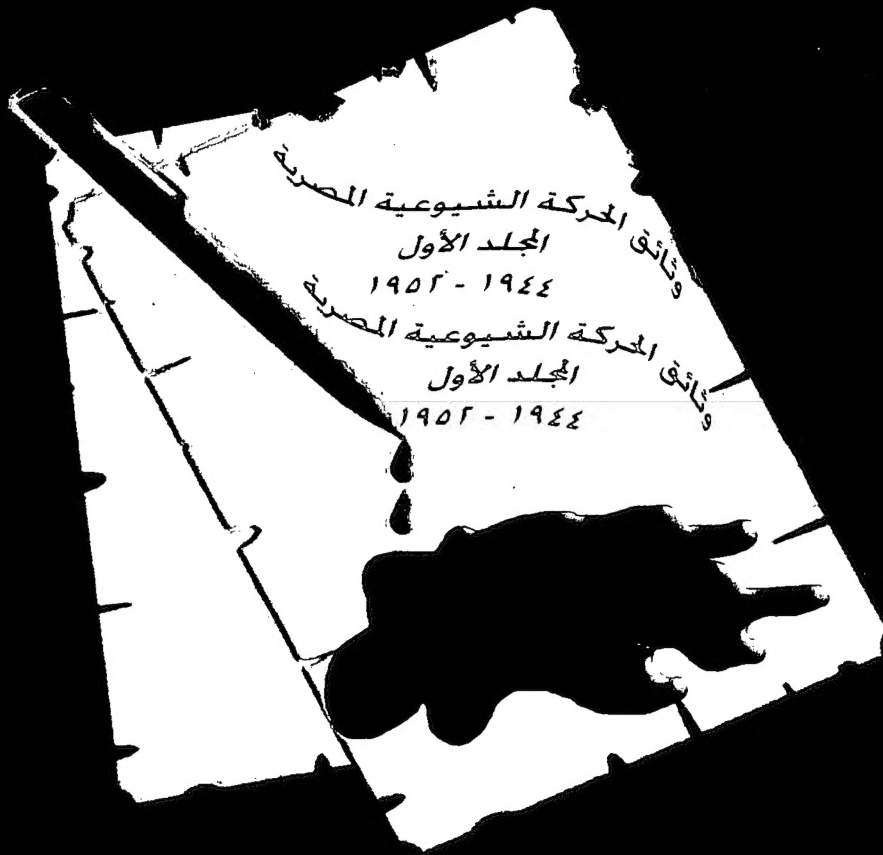 وثائق الحركة الشيوعية المصرية
المجلد الأول
١٩٤٤ - ١٩٥٢
وثائق الحركة الشيوعية المصرية
المجلد الأول
١٩٤٤ - ١٩٥٢